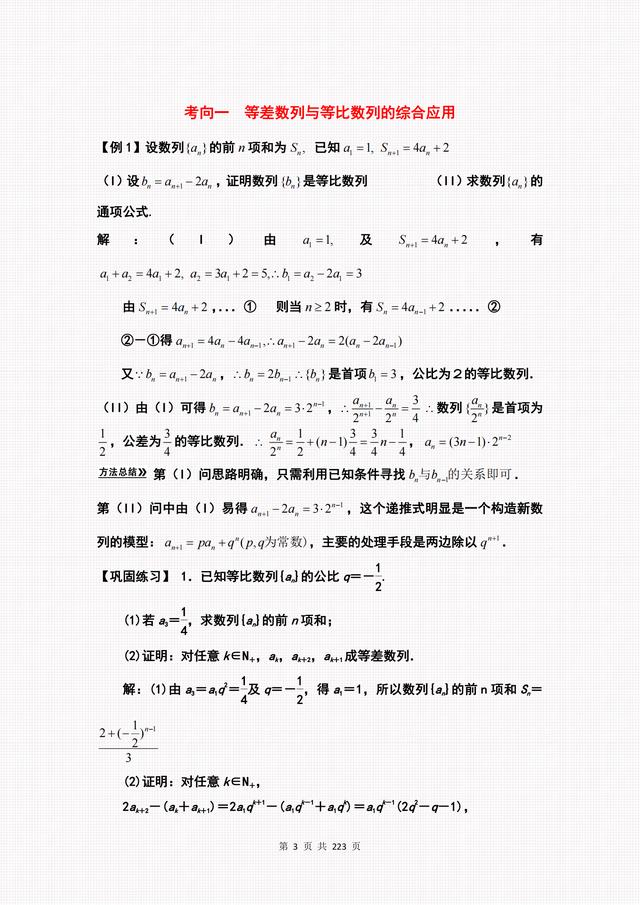 考向一 等差数列与等比数列的综合应用
【例1】设数列{aₙ}的前n项和为 Sₙ, 已知 a₁ = 1, Sₙ₊₁ = 4aₙ + 2
(I)设 bₙ = aₙ₊₁ − 2aₙ，证明数列{bₙ}是等比数列 (II)求数列{aₙ}的
通项公式.
解：(I)由 a₁ = 1, 及 Sₙ₊₁ = 4aₙ + 2，有
a₁ + a₂ = 4a₁ + 2, a₂ = 3a₁ + 2 = 5, ∴ b₁ = a₂ − 2a₁ = 3
由 Sₙ₊₁ = 4aₙ + 2，... ① 则当 n ≥ 2 时，有 Sₙ = 4aₙ₋₁ + 2 ..... ②
②－①得 aₙ₊₁ = 4aₙ − 4aₙ₋₁, ∴ aₙ₊₁ − 2aₙ = 2(aₙ − 2aₙ₋₁)
又∵ bₙ = aₙ₊₁ − 2aₙ，∴ bₙ = 2bₙ₋₁ ∴ {bₙ} 是首项 b₁ = 3，公比为２的等比数列.
(II)由(I)可得 bₙ = aₙ₊₁ − 2aₙ = 3·2ⁿ⁻¹，∴ aₙ₊₁/2ⁿ⁺¹ − aₙ/2ⁿ = 3/4 ∴ 数列{aₙ/2ⁿ}是首项为
1/2，公差为 3/4 的等比数列. ∴ aₙ/2ⁿ = 1/2 + (n−1)3/4 = 3/4 n − 1/4，aₙ = (3n−1)·2ⁿ⁻²
方法总结》 第(I)问思路明确，只需利用已知条件寻找 bₙ与bₙ₋₁的关系即可.
第(II)问中由(I)易得 aₙ₊₁ − 2aₙ = 3·2ⁿ⁻¹，这个递推式明显是一个构造新数
列的模型: aₙ₊₁ = paₙ + qⁿ(p,q为常数)，主要的处理手段是两边除以 qⁿ⁺¹.
【巩固练习】 1. 已知等比数列{aₙ}的公比 q＝－1/2.
(1)若 a₃＝1/4，求数列{aₙ}的前n项和；
(2)证明：对任意 k∈N₊，aₖ，aₖ₊₂，aₖ₊₁成等差数列.
解：(1)由 a₃＝a₁q²＝1/4及 q＝－1/2，得 a₁＝1，所以数列{aₙ}的前n项和 Sₙ＝
(2+(−1/2)ⁿ⁻¹)/3
(2)证明：对任意 k∈N₊，
2aₖ₊₂－(aₖ＋aₖ₊₁)＝2a₁qᵏ⁺¹－(a₁qᵏ⁻¹＋a₁qᵏ)＝a₁qᵏ⁻¹(2q²－q－1)，
第 3 页 共 223 页